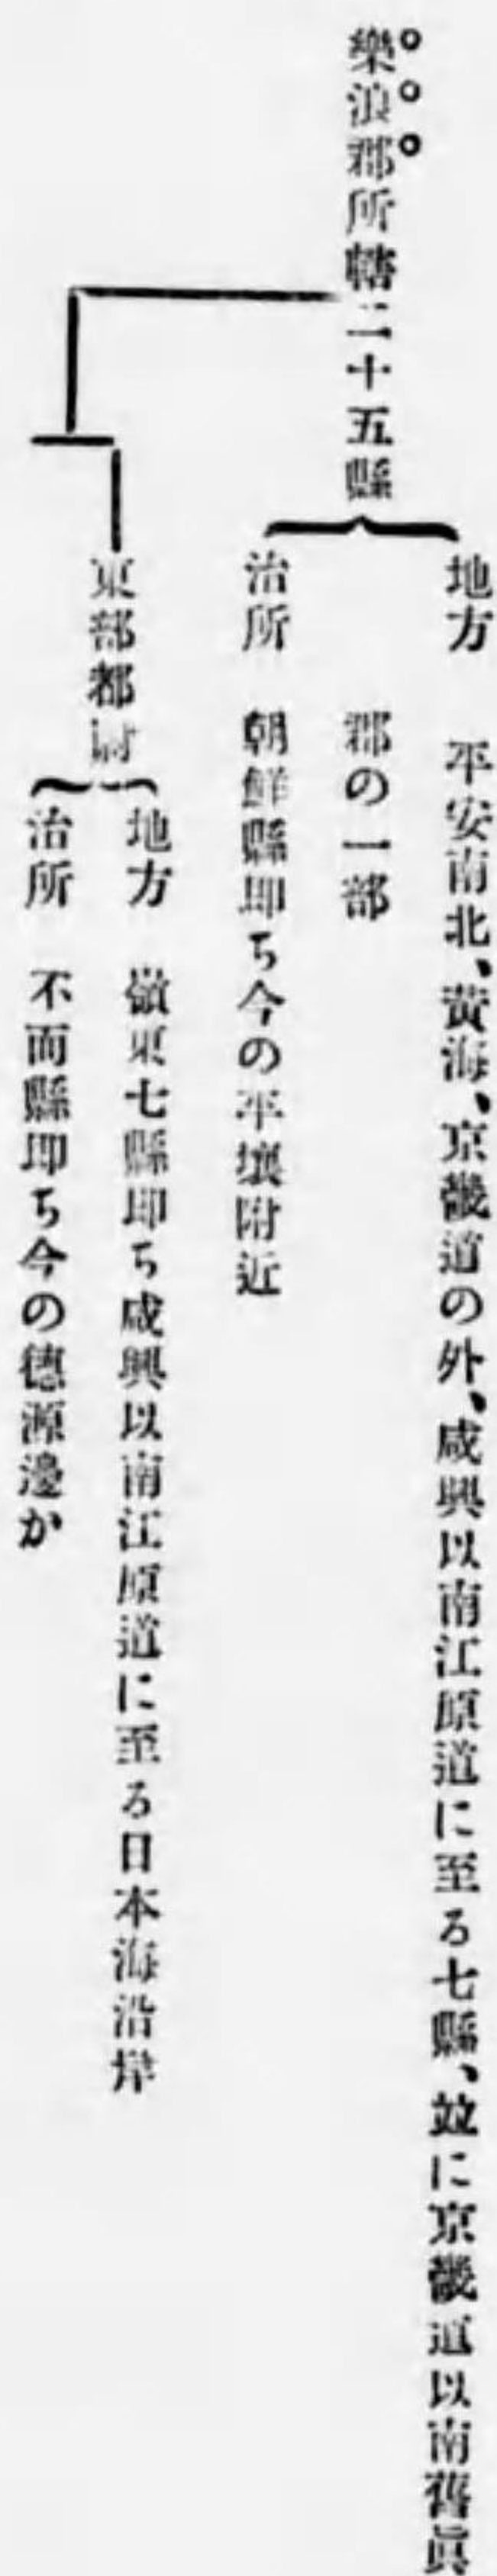 樂浪郡所轄二十五縣
地方　平安南北、黄海、京畿道の外、咸興以南江原道に至る七縣、竝に京畿道以南舊眞
郡の一部
治所　朝鮮縣卽ち今の平壤附近
東部都尉
地方　嶺東七縣卽ち咸興以南江原道に至る日本海沿岸
治所　不而縣卽ち今の德源邊か